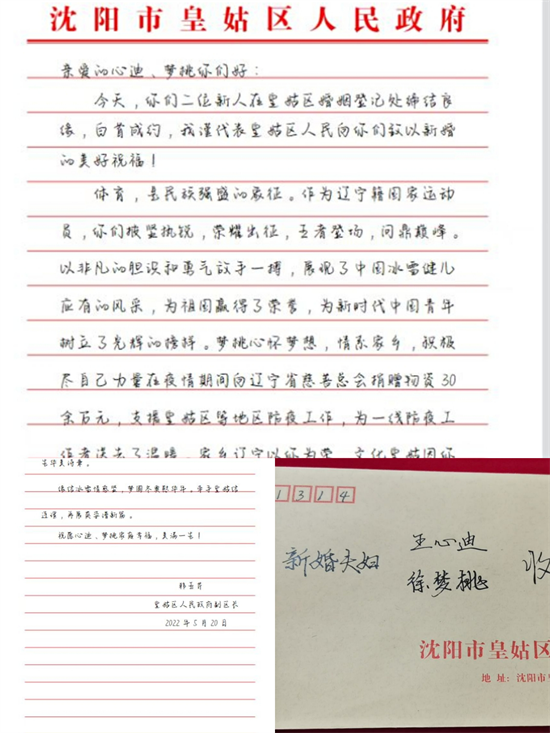 沈阳市皇姑区人民政府
亲爱的心迪、梦桃你们好：
今天，你们二位新人在皇姑区婚姻登记处缔结良
缘，白首成约，我谨代表皇姑区人民向你们致以新婚
的美好祝福！
体育，是民族强盛的象征。作为辽宁籍国家运动
员，你们披坚执锐，荣耀出征，王者登场，问鼎巅峰。
以非凡的胆识和勇气放手一搏，展现了中国冰雪健儿
应有的风采，为祖国赢得了荣誉，为新时代中国青年
树立了光辉的榜样。梦桃心怀梦想，情系家乡，积极
尽自己力量在疫情期间向辽宁省慈善总会捐赠物资30
余百元，支援皇姑区等地区防疫工作，为一线防疫工
作者送去了温暖，家乡辽宁以你为荣，文化皇姑因你
缘结冰雪情意坚，梦圆
再
祝愿心迪、梦桃家庭幸福，美满一生！
皇姑区人民政府副区长
2022年5月20日
1314
新婚夫妇
王心迪
徐梦桃
收
沈阳市皇姑区
地 址：沈阳市